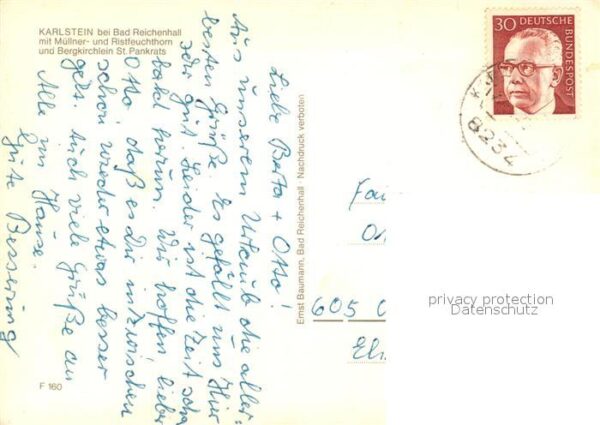 KARLSTEIN bei Bad Reichenhall
mit Müllner- und Ristfeuchthorn
und Bergkirchlein St. Pankrats
Liebe Berta + Otto!
Aus unserem Urlaub die aller-
besten Grüße. Es gefällt uns hier
sehr gut. Leider ist die Zeit scho
bald herum. Wir hoffen, lieber
Otto, daß es Dir inzwischen
schon wieder etwas besser
geht. Auch viele Grüße an
Alle im Hause.
Gute Besserung
F 160
Ernst Baumann, Bad Reichenhall / Nachdruck verboten
30 DEUTSCHE
BUNDESPOST
8234
Fa
605
privacy protection
Datenschutz